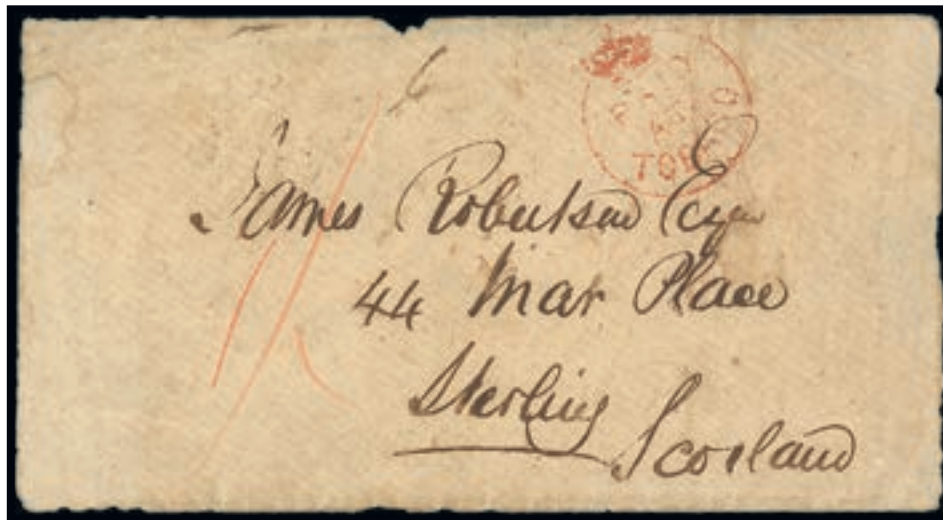 James Robertson Esqr
44 Mar Place
Sterling
Scotland